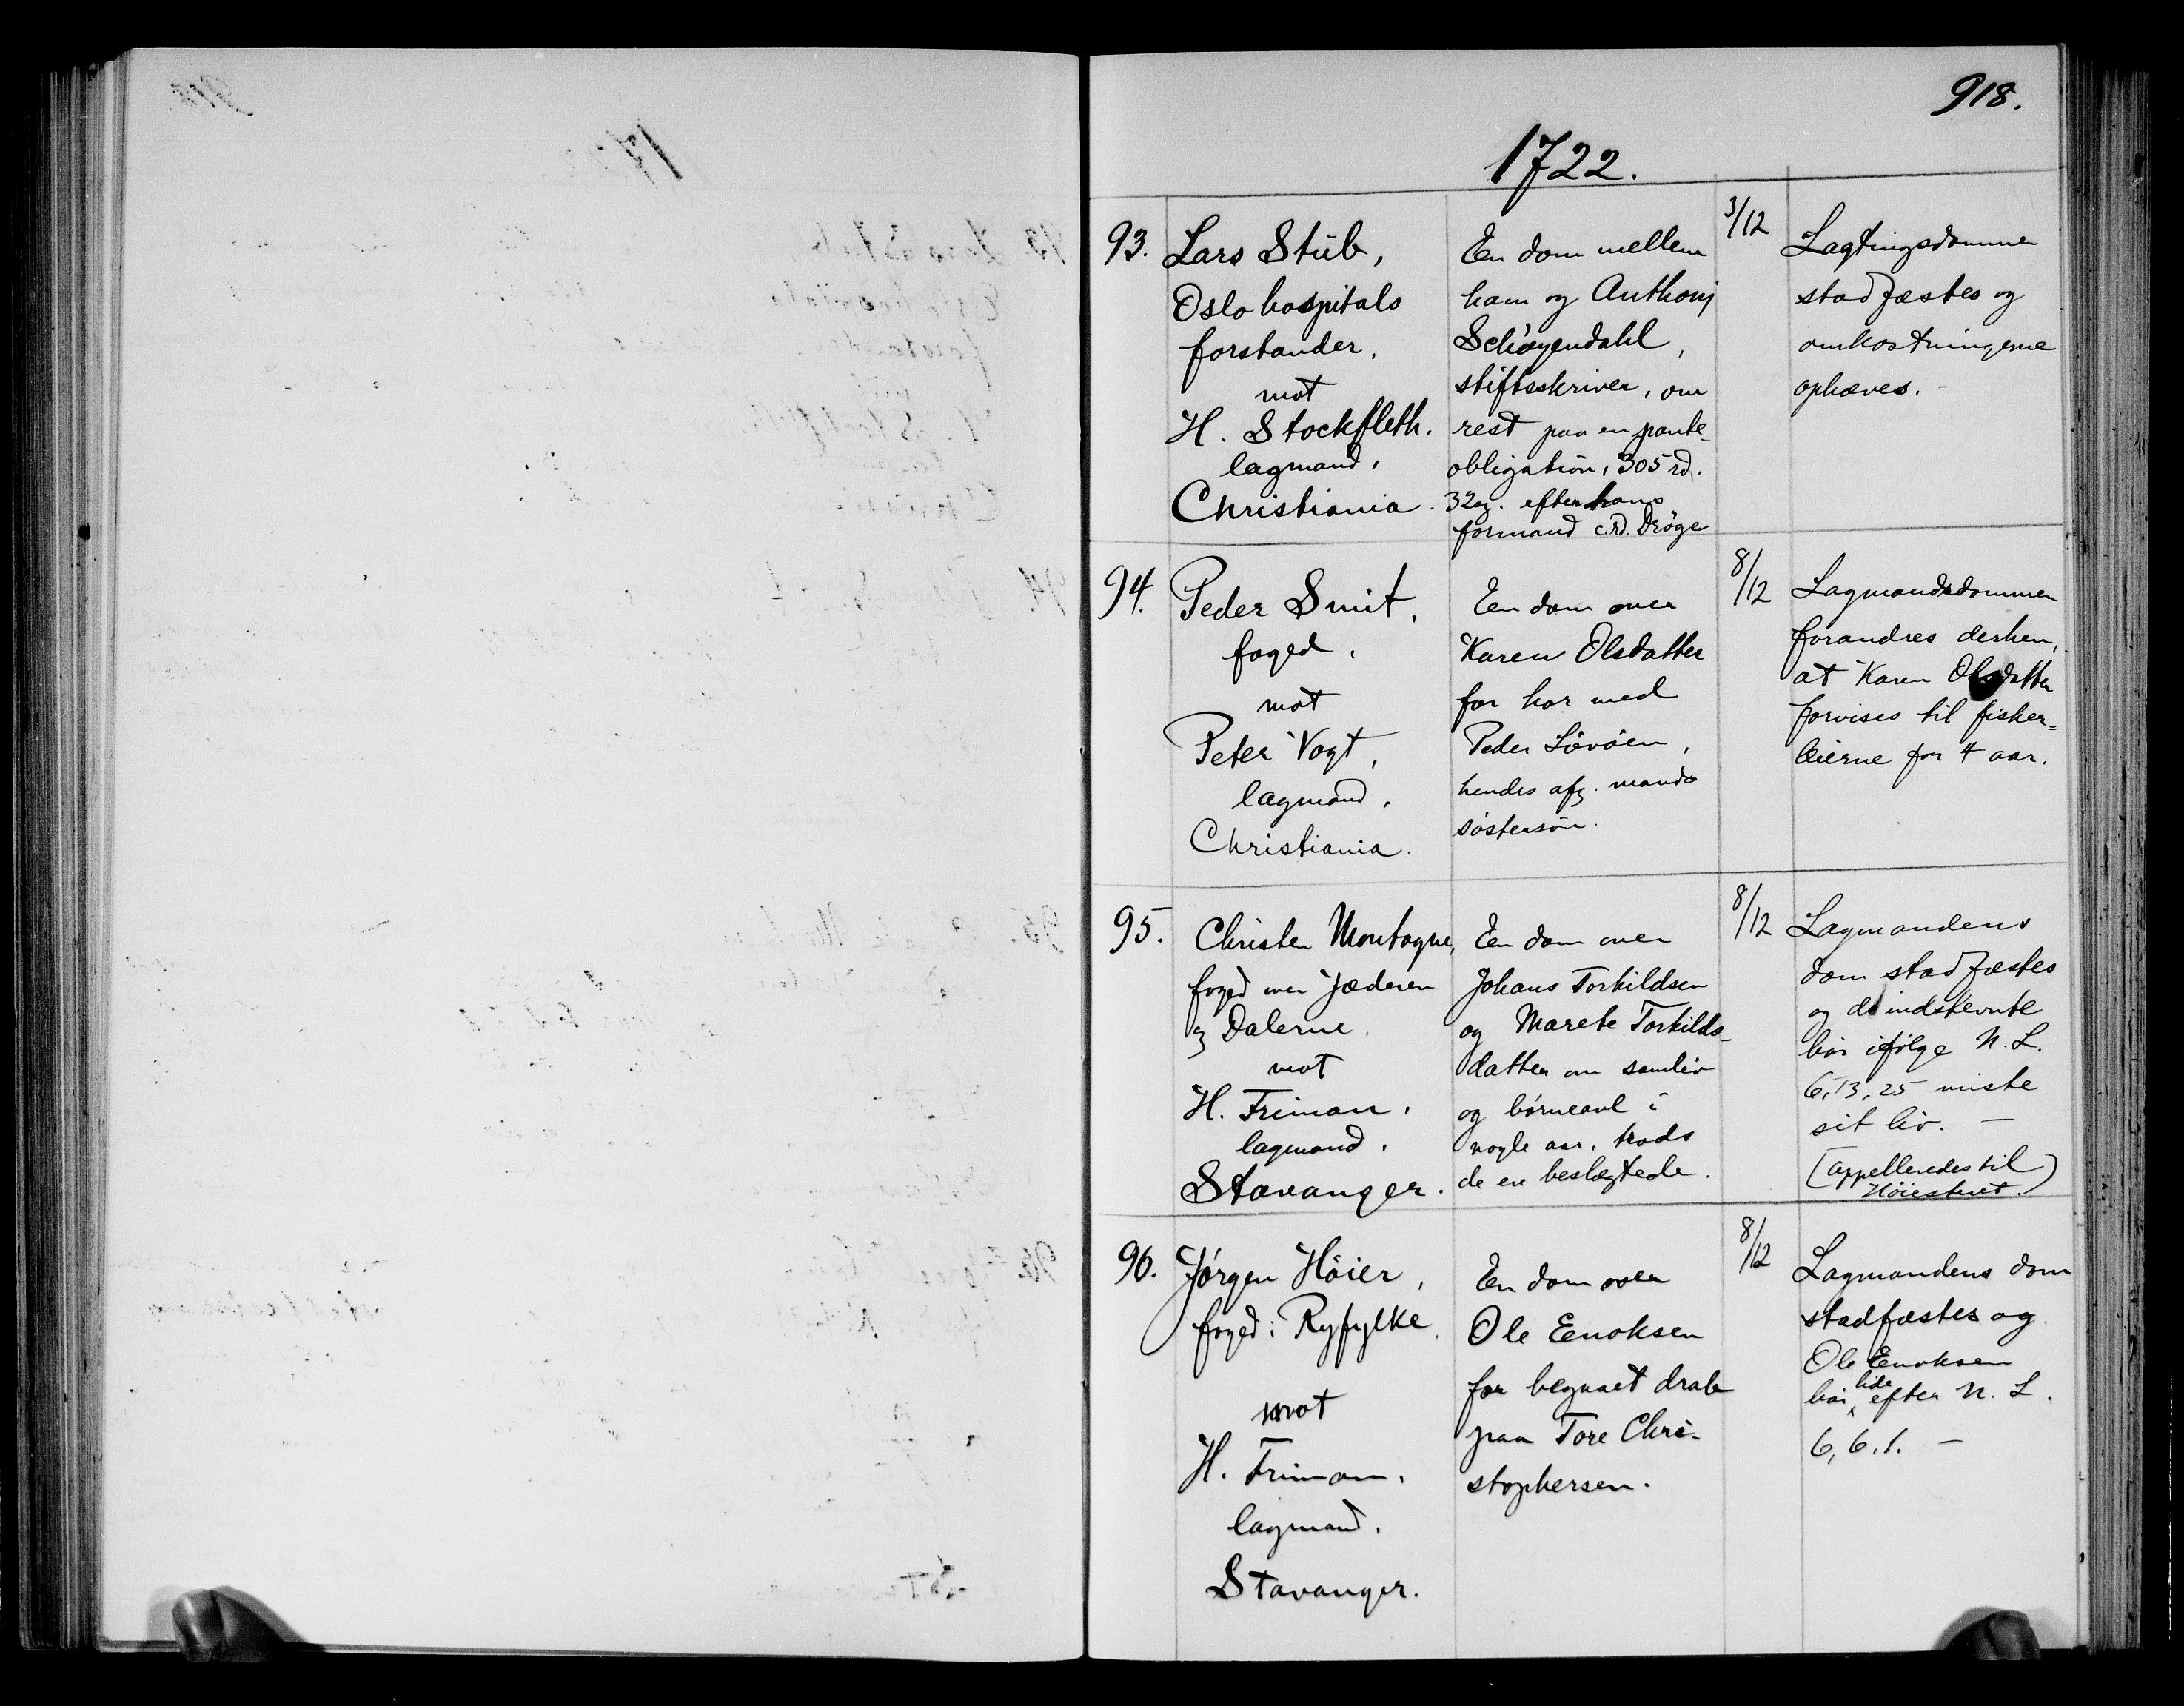 918.
1722.
93.
Lars Stub,
Oslo hospitals
forstander,
mot
H. Stockfleth.
lagmand,
Christiania.
En dom mellem
ham og Anthonj
Schøyendahl,
stiftsskriver, om
rest paa en pante-
obligation, 305 rd.
32 efter hans
formand Drøge
3/12
Lagtingsdommen
stadfæstes og
omkostningerne
ophæves. -
94.
Peder Smit,
foged,
mot
Peter Vogt,
lagmand,
Christiania.
En dom over
Karen Olsdatter
for hor med
Peder Løvøen,
hendes afg. mands
søstersøn.
8/12
Lagmandsdommen
forandres derhen,
at Karen Olsdatter
forvises til fisker=
leierne for 4 aar.
95.
Christen Montagne,
foged over Jæderen
og Dalerne.
mot
H. Friman,
lagmand,
Stavanger.
En dom over
Johans Torkildsen
og Marete Torkilds-
datter om samliv
og børneavl i
nogle aar, trods
de er beslægtede.
8/12
Lagmandens
dom stadfæstes
og de indstevnte
bør ifølge N. L.
6, 13, 25 miste
sit liv. -
(appelleredes til
Høiesteret.)
96.
Jørgen Høier,
foged i Ryfylke,
mot
H. Friman,
lagmand,
Stavanger.
En dom over
Ole Enoksen
for begaaet drab
paa Tore Chri-
stophersen.
8/12
Lagmandens dom
stadfæstes og
Ole Enoksen
bør lide efter N. L.
6, 6. 1. -